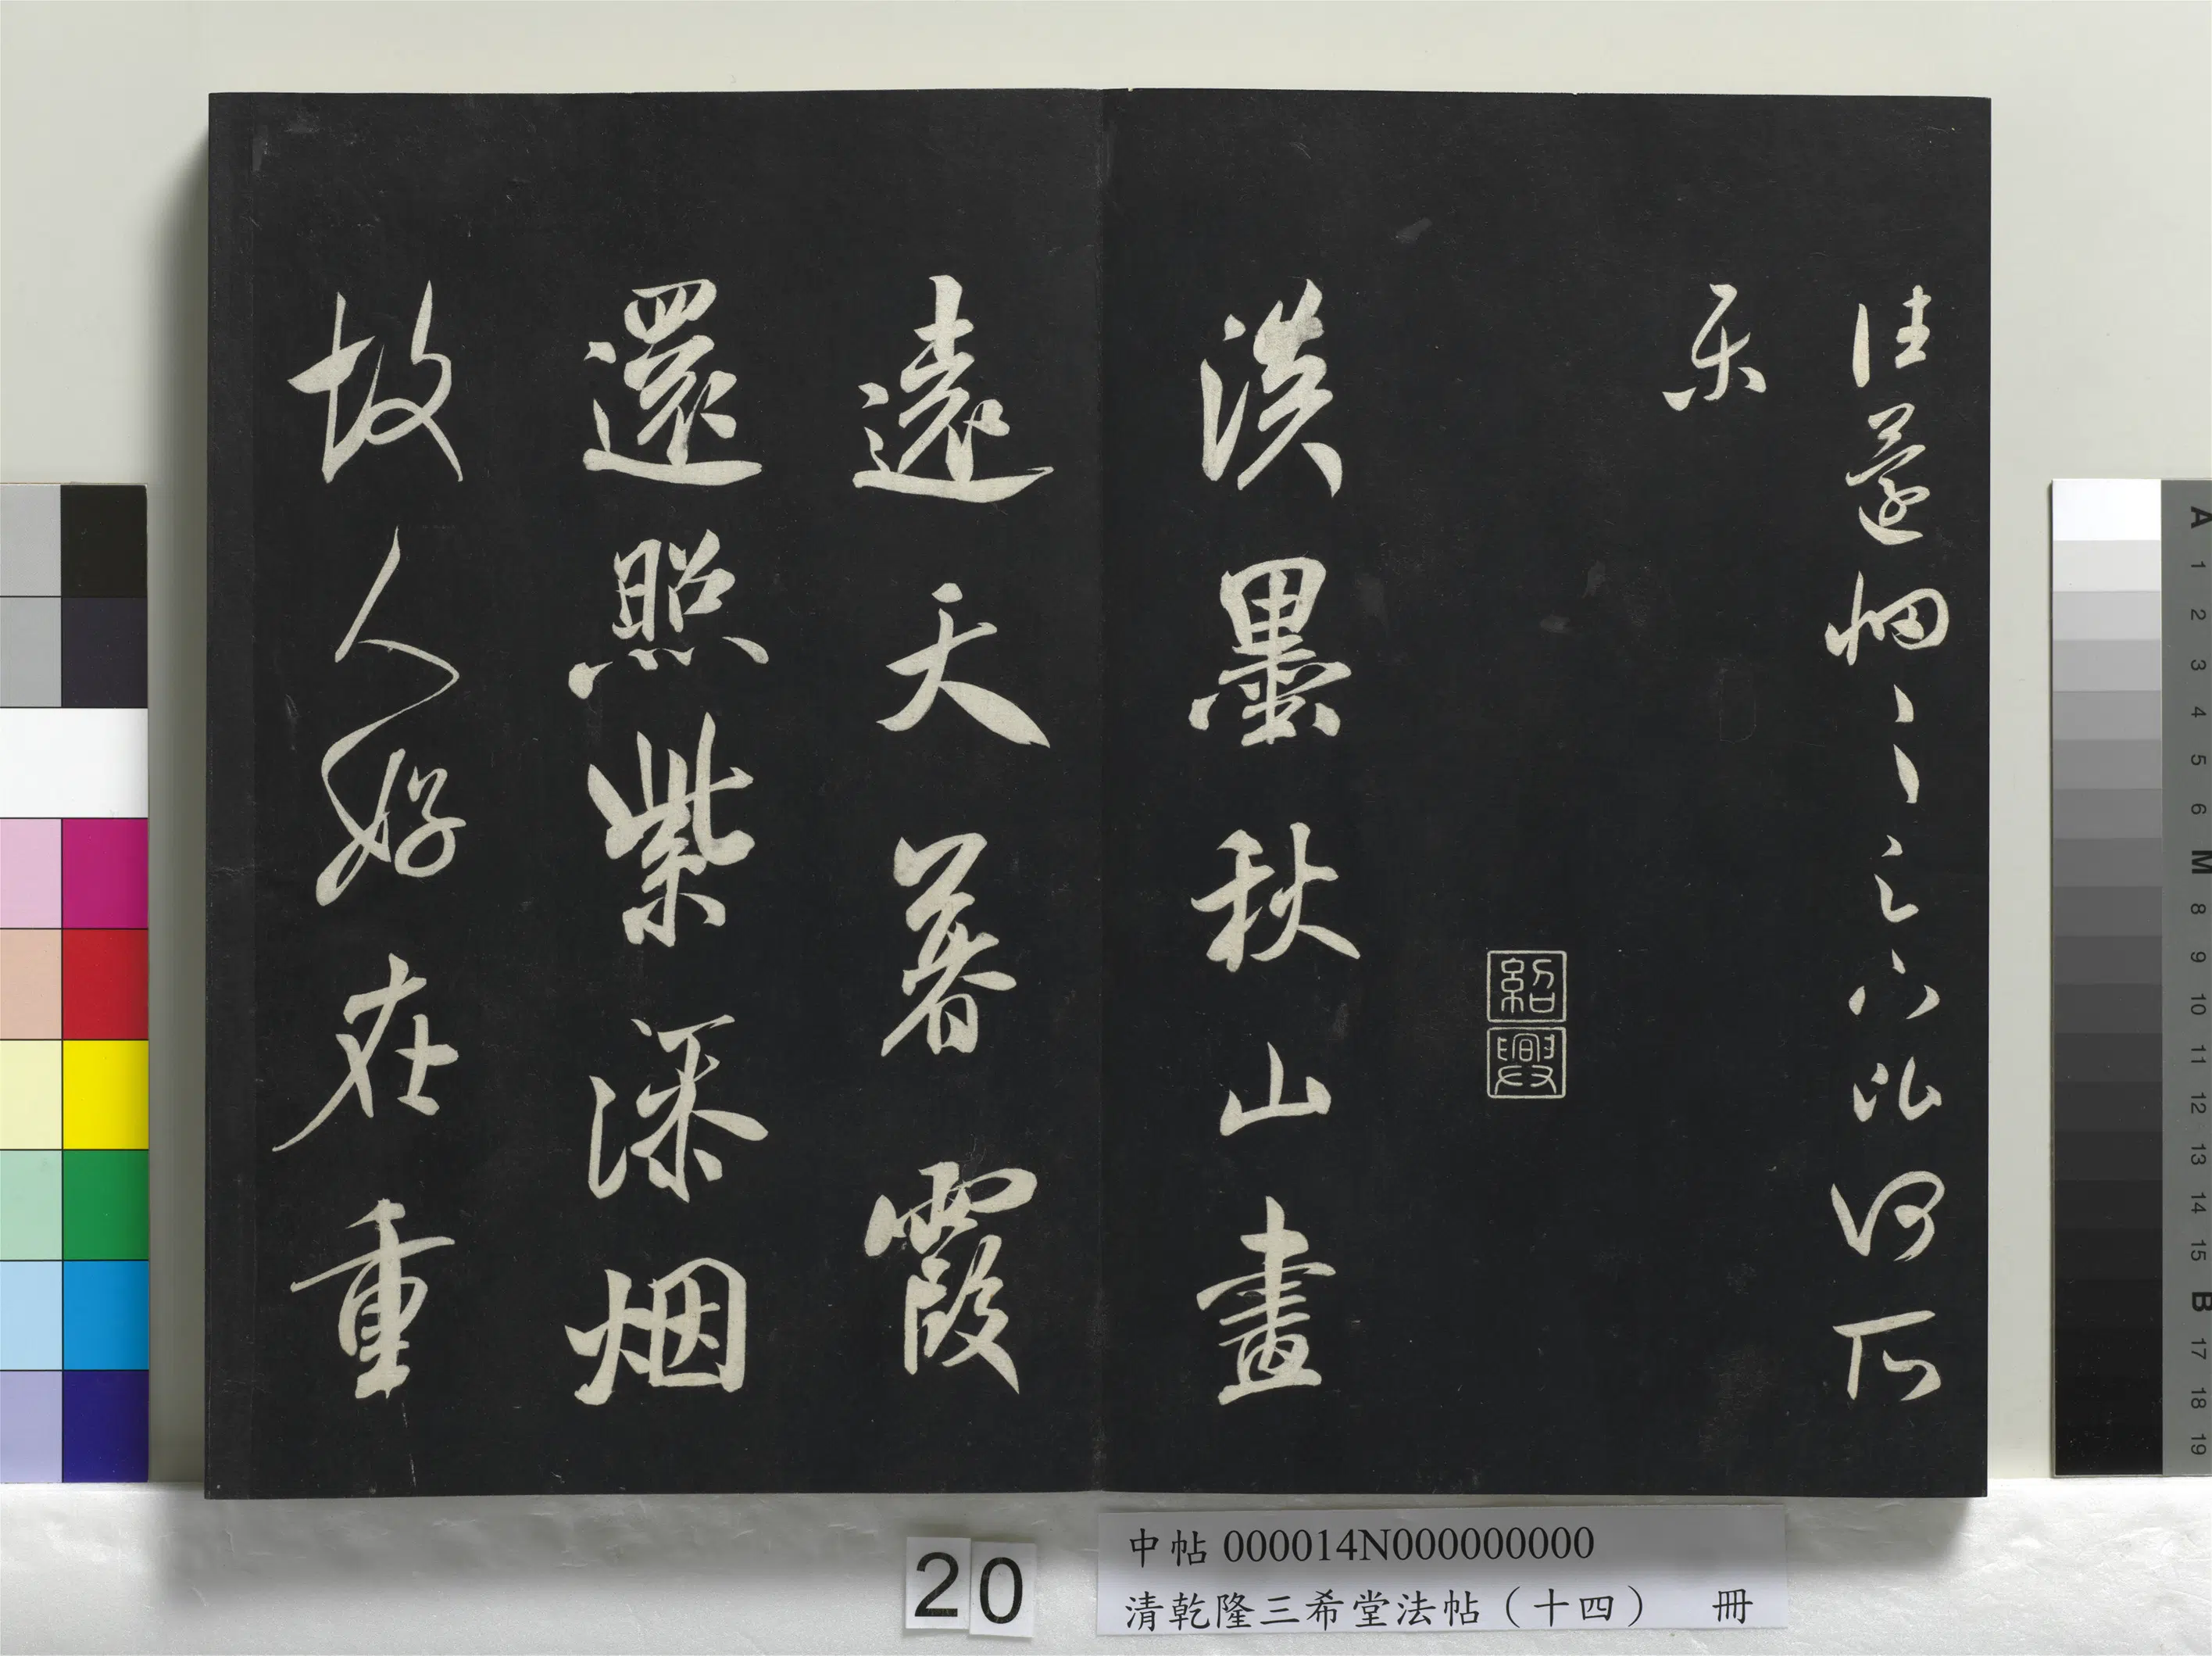 佳薳惘〻之六以何所
乐
紹興
淡墨秋山畫
遠天暮霞
還照紫添烟
故人好在重
20
中帖 000014N000000000
清乾隆三希堂法帖（十四） 冊
A
1
2
3
4
5
6
M
8
9
10
11
12
13
14
15
B
17
18
19